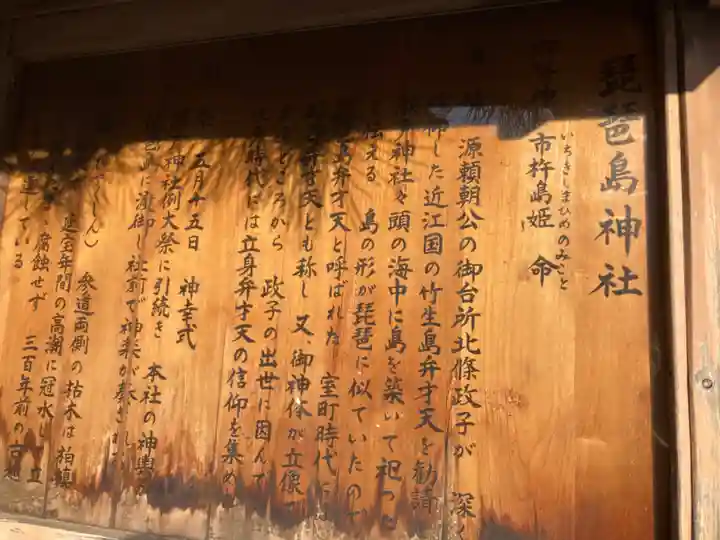 琵琶島神社
市杵島姫命
いちきしまひめのみこと
源頼朝公の御台所北條政子が 深く
した近江国の竹生島弁才天を勧請
神社々頭の海中に島を築いて祀った
伝える 島の形が琵琶に似ていたので
島弁才天と呼ばれた 室町時代には
弁才天とも称し 又、御神体が立像で
ところから 政子の出世に因んで
時代には立身弁才天の信仰を集め
五月十五日 神幸式
神社例大祭に引続き 本社の神輿が
に渡御し社前で神楽が奏され
しん) 参道両側の枯木は柏槙
延宝年間の高潮に冠水し
腐蝕せず 三百年前の古
している